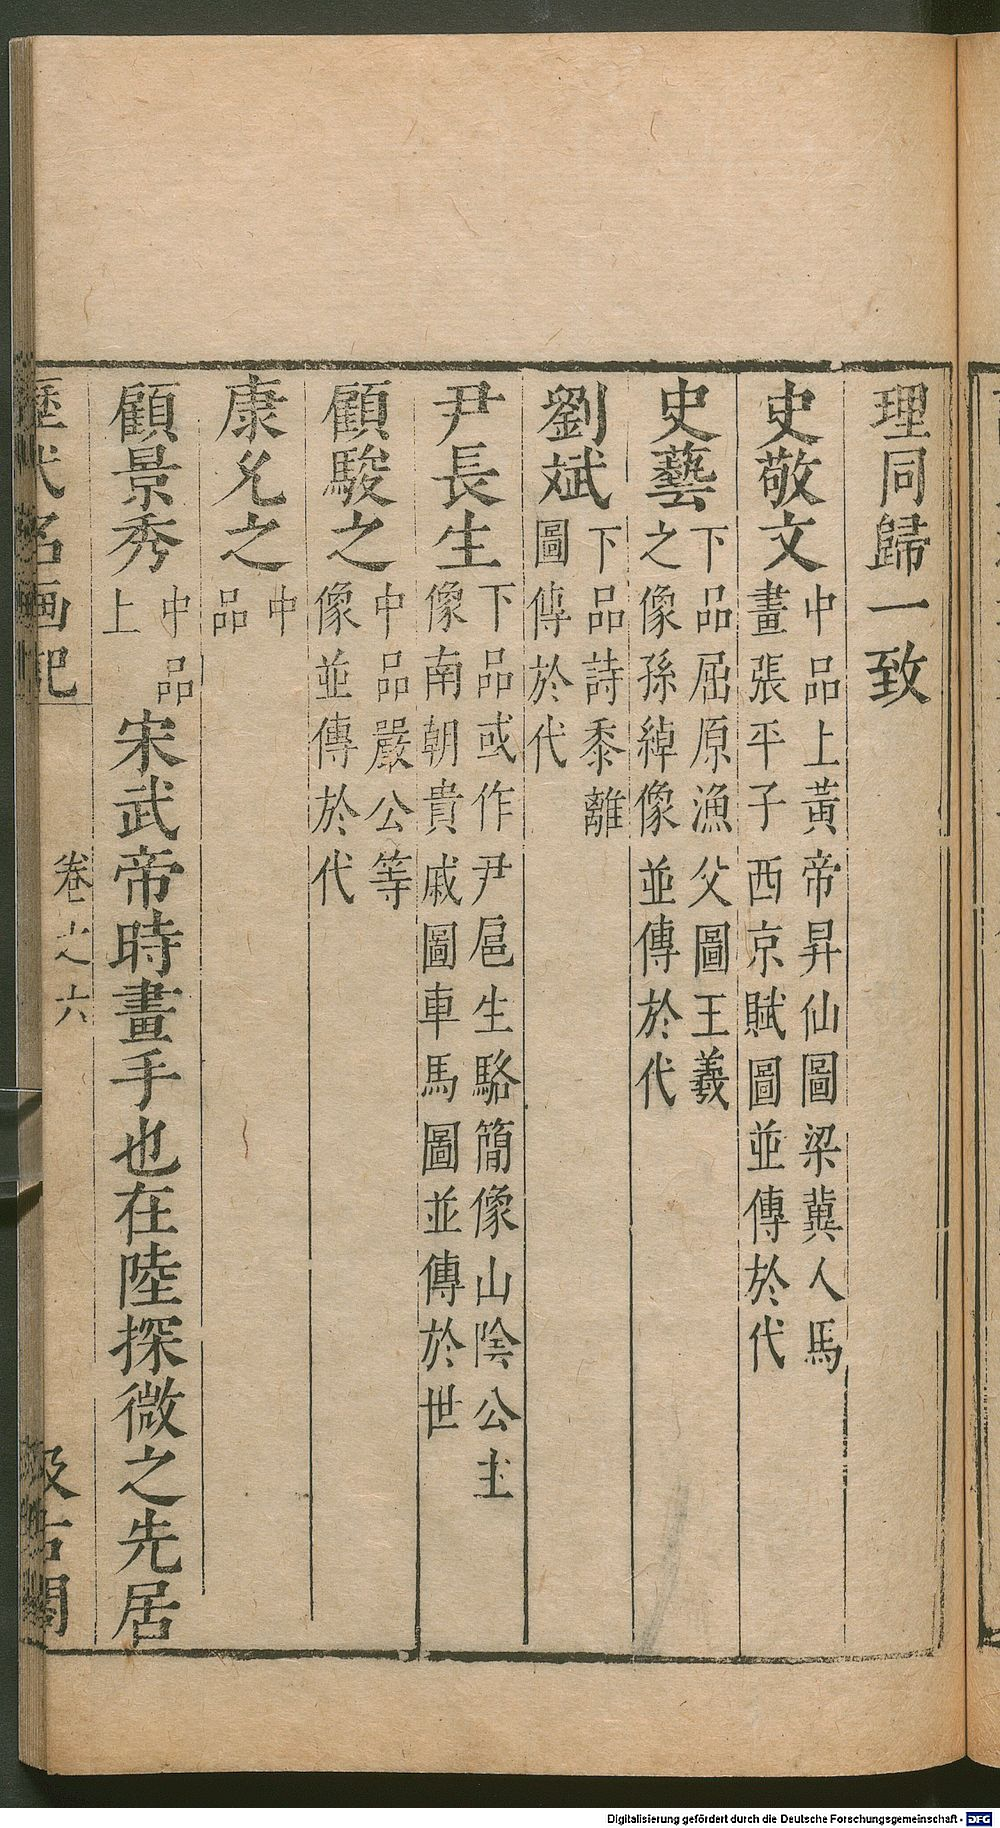 理同歸一致
史敬文中品上黃帝昇仙圖梁冀人馬
畫張平子西京賦圖並傳於代
史藝下品屈原漁父圖王羲
之像孫綽像並傳於代
劉斌下品詩黍離
圖傳於代
尹長生下品或作尹扈生駱簡像山陰公主
像南朝貴戚圖車馬圖並傳於世
顧駿之中品嚴公等
像並傳於代
康允之中
品
顧景秀中品
上
宋武帝時畫手也在陸探微之先居
歷代名画記 卷之六 汲古閣
Digitalisierung gefördert durch die Deutsche Forschungsgemeinschaft - DFG